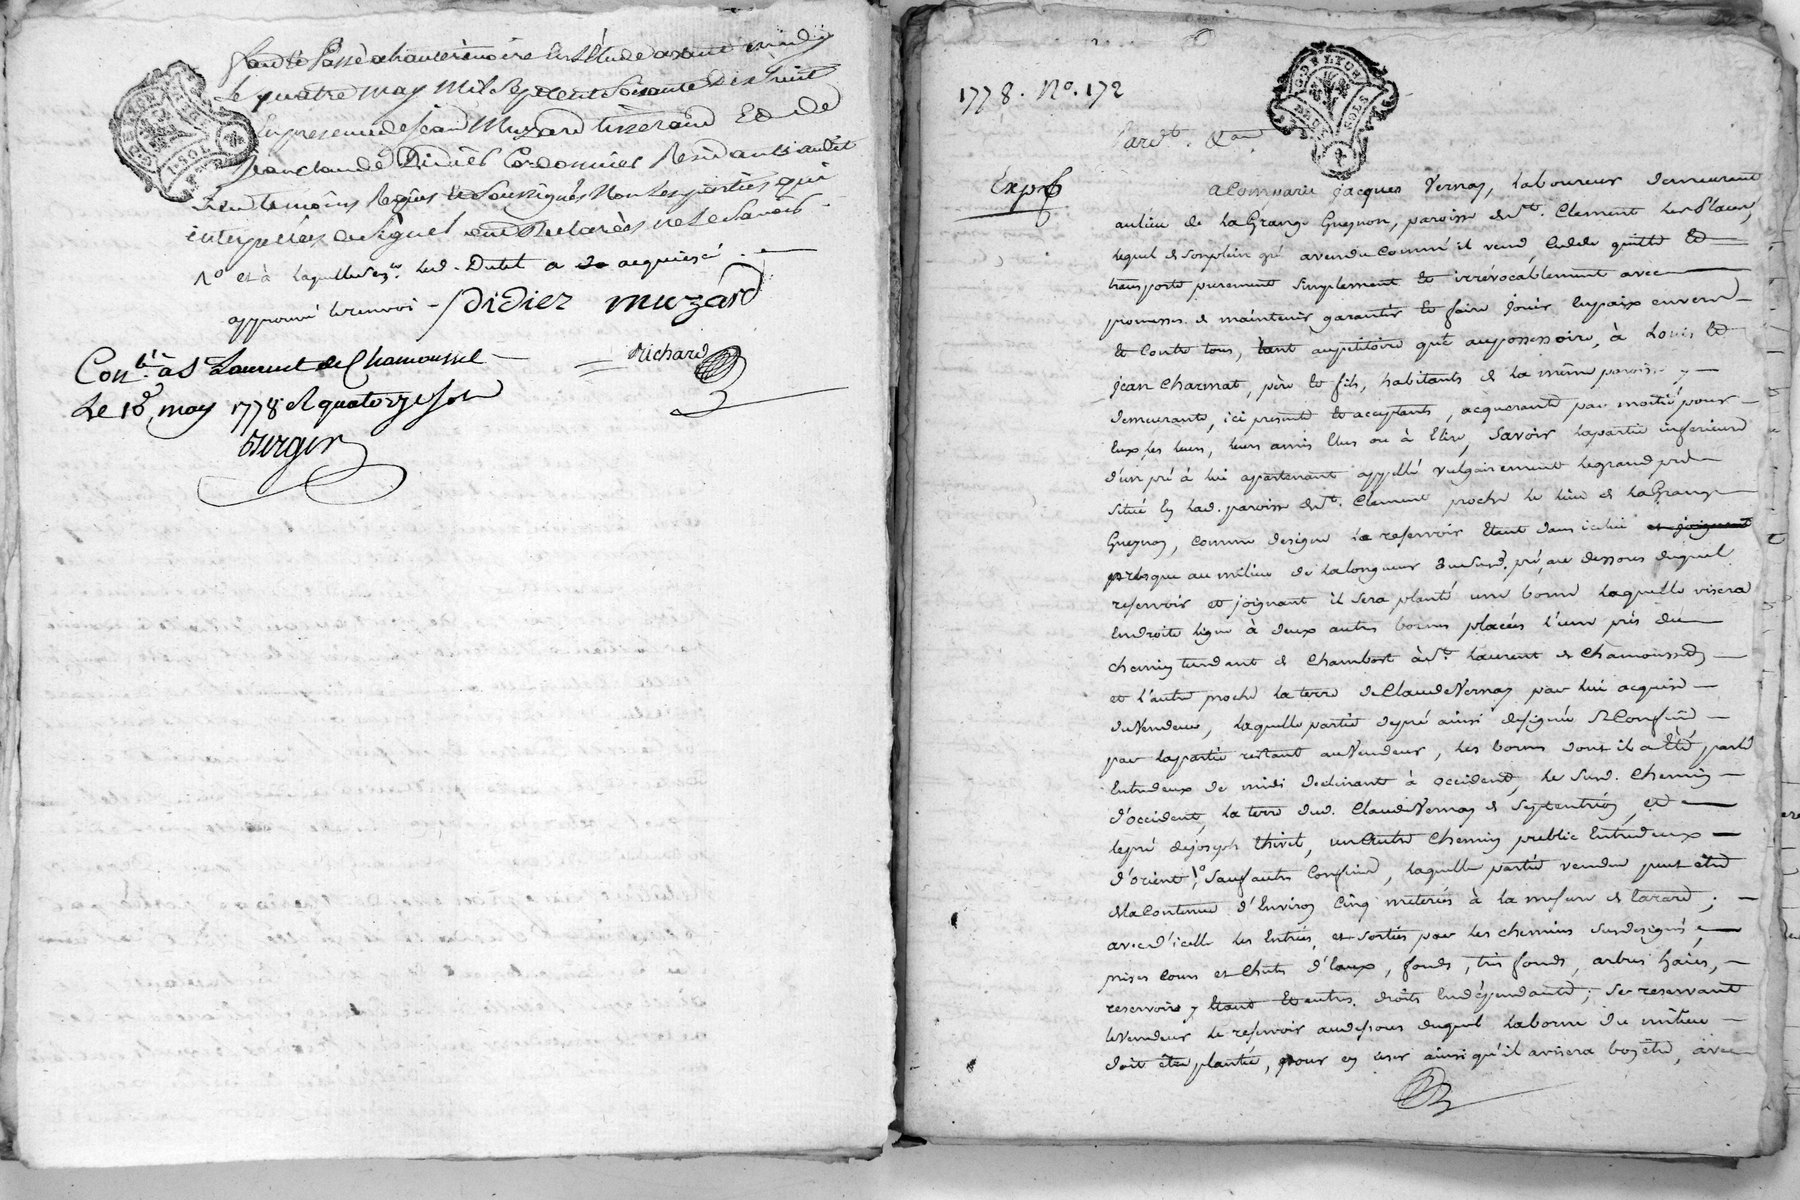 fait et Passé a haute rivoire en l'Etude avant midy
le quatre may Mil Sept Cent Soixante Dix huit
En presence de Jean Muzard tisserand Et de
Jean claude Didier Cordonnier Residants audit
lieu temoins Requis et Soussignés Non les parties qui
interpellées de Signer ont Declarées ne le Scavoir
led. Dutel a acquiescé.
approuvé le renvoi - Didier muzard
Richard
Con.lé à St Laurent de Chamousset
Le 18 may 1778 Rt quatorze sols
G. DE LYON
1 SOL
1778. No. 172
G. DE LYON
DEUX SOLS
Pardt. &a.
Exp.
a Comparu jacques Vernay, Laboureur Demeurant
au lieu de La Grange Gueynon, paroisse de St. Clement les Places,
lequel de son plein gré a vendu comme il vend, Cede quitte et
transporte purement Simplement et irrévocablement avec
promesses de maintenir garantir et faire jouir en paix envers
et Contre tous, tant au petitoire que au possessoire, à Louis et
jean Charmat, père et fils, habitants de la même paroisse y
Demeurants, ici presents et acceptants, acquerants par moitié pour
Eux, les leurs, leurs amis Elus ou à Elire, Savoir la partie inferieure
d'un pré à lui apartenant appellé vulgairement le grand pré
situé En lad. paroisse de St. Clement proche le lieu de la Grange
Gueynon, comme designe le reservoir Etant dans icelui et joignant
presque au milieu de la longueur du sud. pré, au dessous duquel
reservoir et joignant il sera planté une borne laquelle visera
En droite ligne à deux autres bornes placées l'une près du
chemin tendant de Chambost à St. Laurent de Chamousset
et l'autre proche la terre de Claude Vernay par lui acquise
du Vendeur, laquelle partie de pré ainsi designée Se Confine
par la partie restant au Vendeur, les bornes dont il a Eté parlé
Entredeux de midi declinant à occident, le Susd. Chemin
d'occident, la terre dud. Claude Vernay de Septentrion, et
le pré de joseph thivel, un autre Chemin public Entredeux
d'orient, Sauf autres Confins, laquelle partie vendue peut être
de la Contenue d'Environ Cinq meterées à la mesure de tarare;
avec d'icelle les Entrées, et Sorties par les chemins Susdesignés,
prises cours et Chute d'Eaux, fonds, tres fonds, arbres haies,
reservoirs y Etant Et autres droits En dépendants; Se reservant
le Vendeur le reservoir au dessous duquel la borne du milieu
doit être plantée, pour en user ainsi qu'il avisera bon être, avec